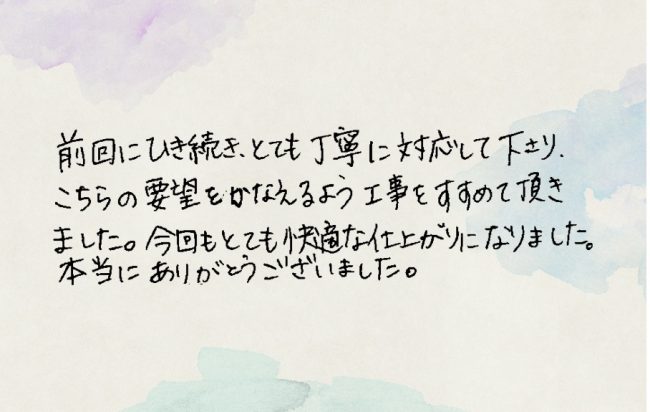 前回にひき続き、とても丁寧に対応して下さり、
こちらの要望をかなえるよう工事をすすめて頂き
ました。今回もとても快適な仕上がりになりました。
本当にありがとうございました。